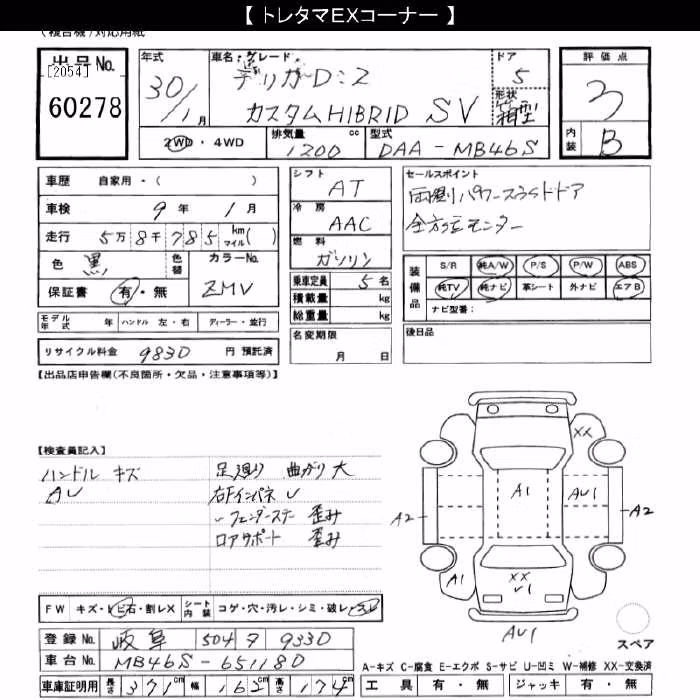 【 トレタマEXコーナー 】
(複合機)対応用紙
出品No. [2054] 60278
年式 30/1月
車名・グレード デリカD:2 カスタムHIBRID SV
ドア 5
形状 箱型
評価点 3
内装 B
2WD・4WD 排気量 1200 cc 型式 DAA-MB46S
車歴 自家用・( )
車検 9年 1月
走行 5万8千785 km マイル( )
色 黒 色替 カラーNo. ZMV
保証書 有・無
シフト AT
冷房 AAC
燃料 ガソリン
乗車定員 5名
積載量 kg
総重量 kg
名変期限 月 日
セールスポイント
両側パワースライドドア
全方位モニター
装備品 S/R 純A/W P/S P/W ABS
純TV 純ナビ 革シート 外ナビ エアB
ナビ型番:
後日品
モデル年式 年 ハンドル 左・右 ディーラー・並行
リサイクル料金 9830 円 預託済
【出品店申告欄(不良箇所・欠品・注意事項等)】
【検査員記入】
ハンドル キズ
AU
足廻り 曲がり大
右Fインパネ U
〃フェンダーステー 歪み
ロアサポート 歪み
XX
A1
AU1
A2
A2
A1
XX
U1
AU1
スペア
FW キズ・トビ石・割レX シート内装 コゲ・穴・汚レ・シミ・破レ・スレ
登録No. 岐阜 504 タ 9330
車台No. MB46S-651180
車庫証明用 長さ 371cm 幅 162cm 高さ 174cm
A-キズ C-腐食 E-エクボ S-サビ U-凹ミ W-補修 XX-交換済
工具 有・無 ジャッキ 有・無